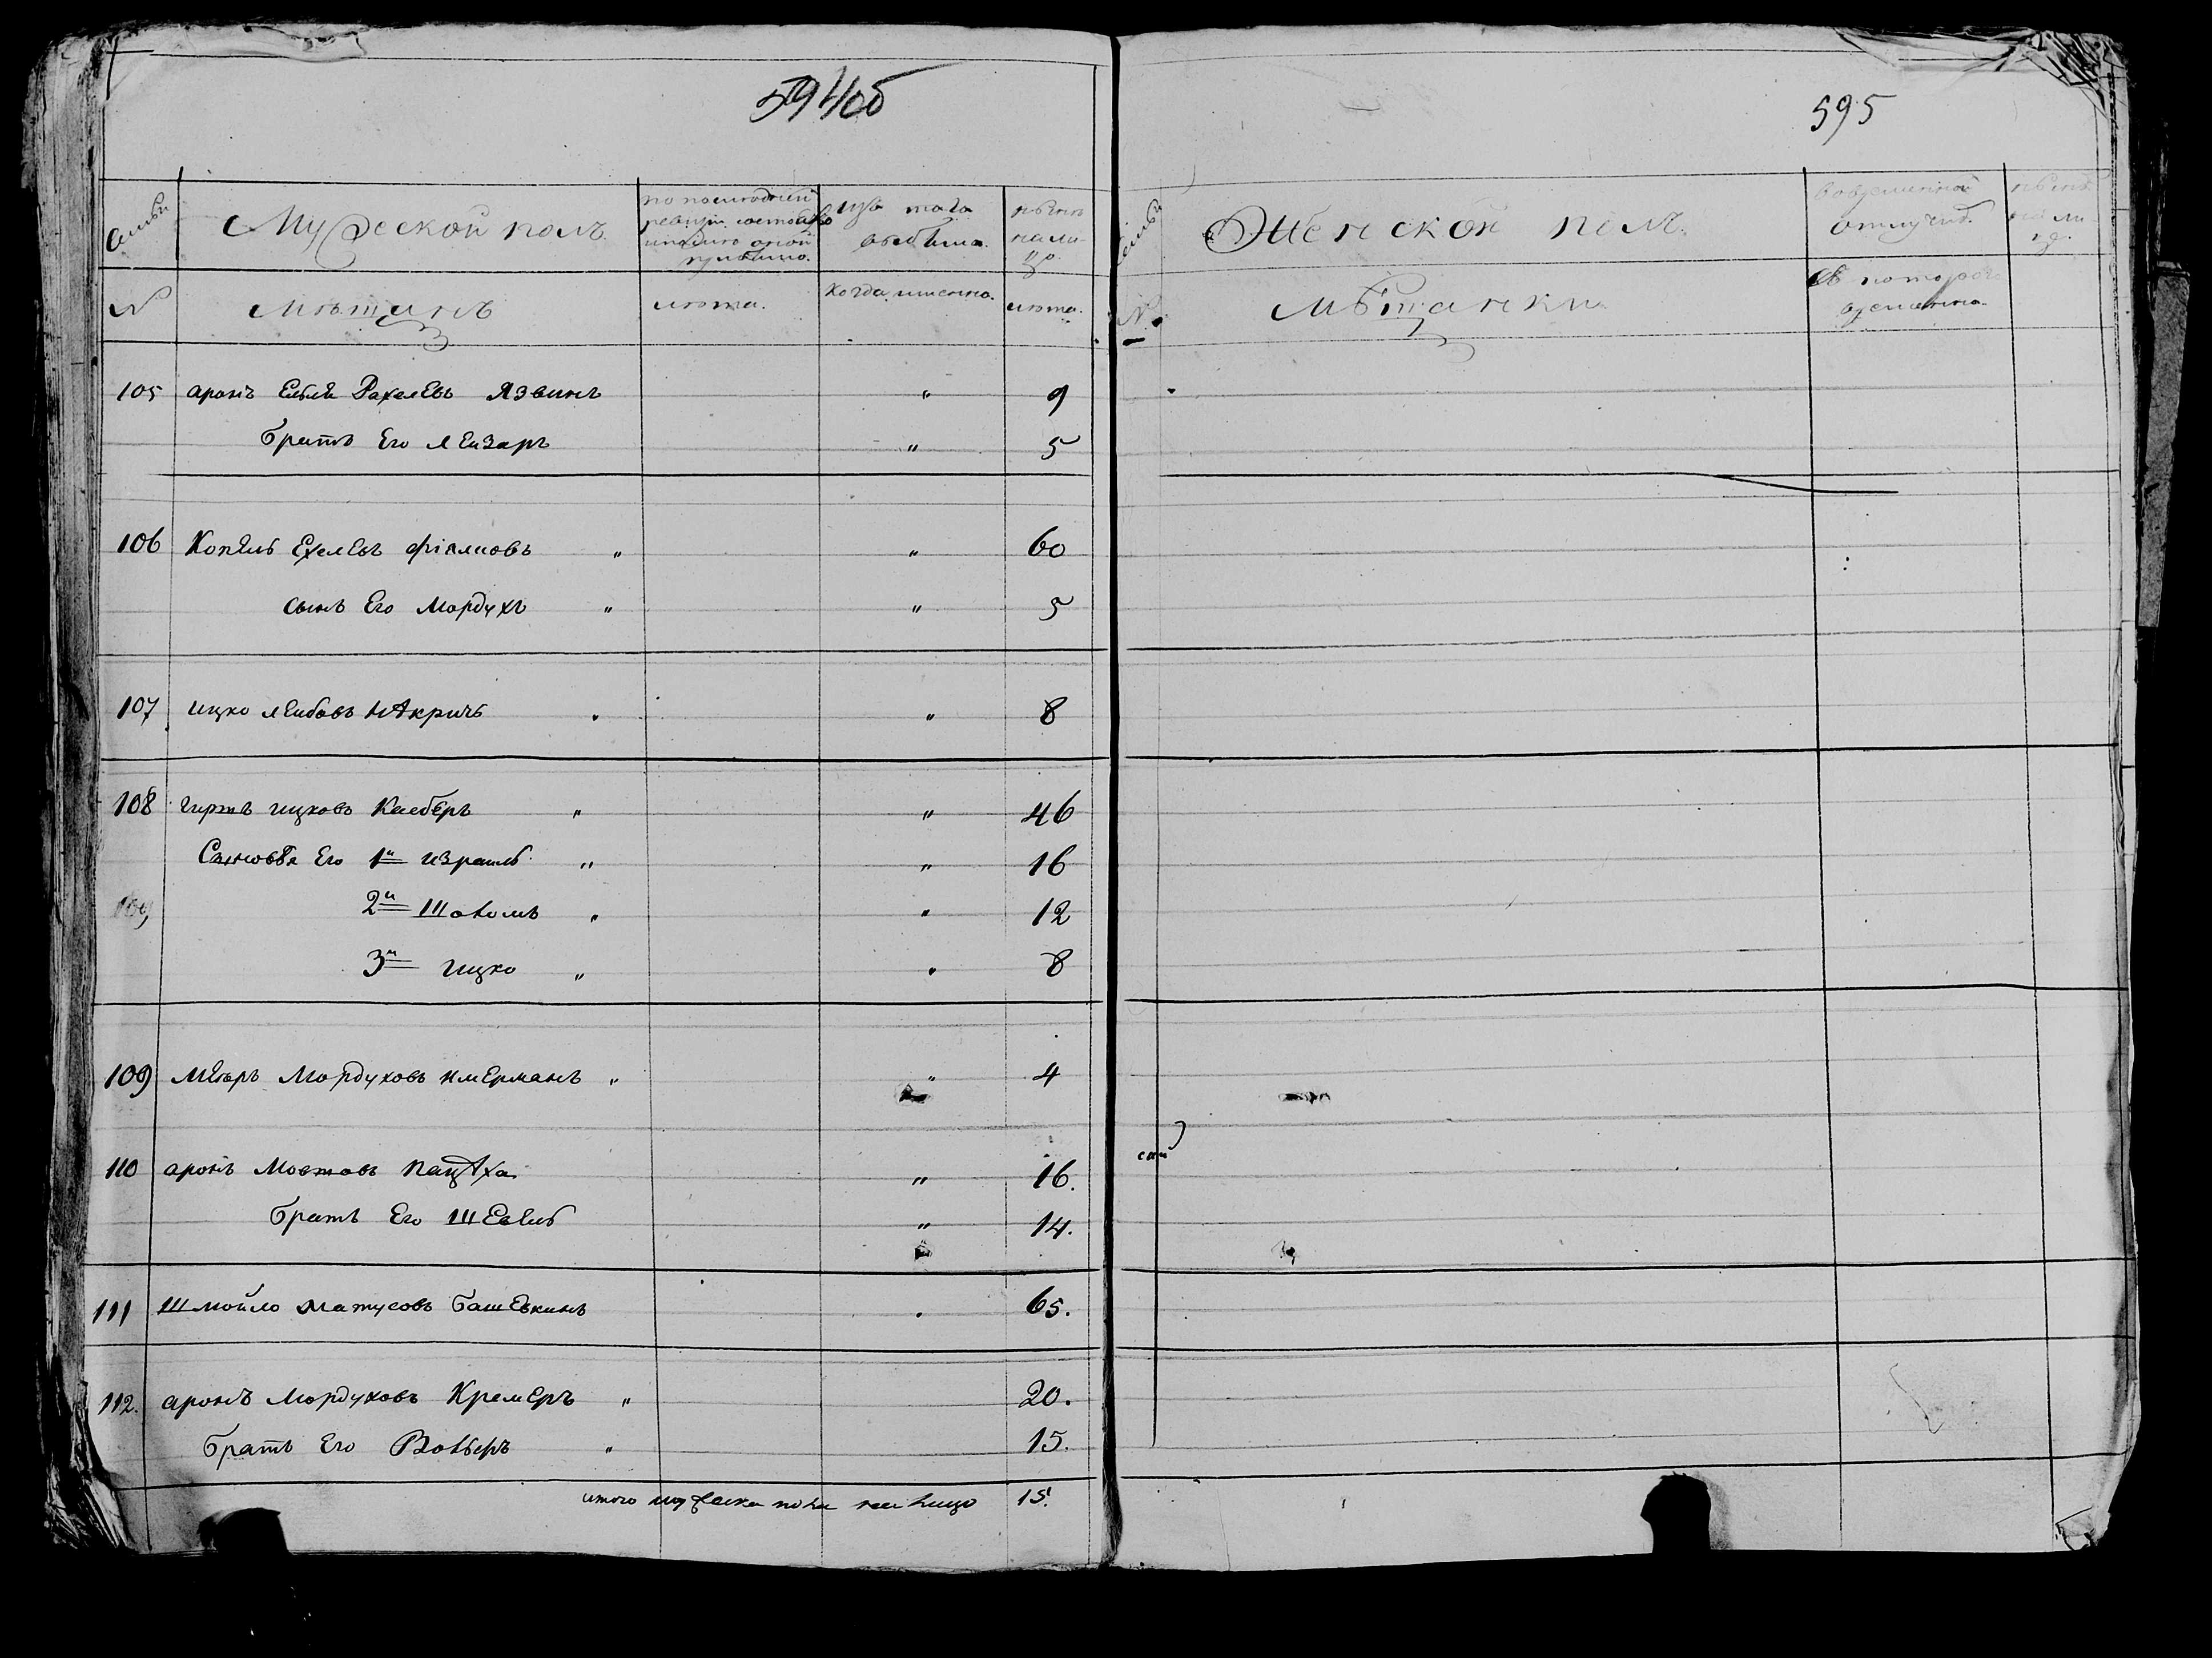 594об
Семьи
Мужескои полъ
по последнеи
ревизіи состояло
и после оной
прибыло.
изъ того
выбыло.
ныне
нали-
цо
№
Мѣщанъ
лѣта.
Когда именно.
лѣта.
105 аронъ Ельяи Рахелевъ Язвинъ " 9
братъ Его леизаръ " 5
106 Копель Ехелевъ фіалковъ " " 60
сынъ Его Мордухъ " " 5
107 ицко леибовъ " " 8
108 гиршъ ицковъ " " 46
Сыновья Его 1й израиль " " 16
109
2й Шоломъ " " 12
3й ицко " " 8
109 Меюръ Мордуховъ " " 4
110 аронъ Мовшовъ " 16.
братъ Его Шевель " 14.
111 Шмойло матусовъ башевкинъ 65.
112. аронъ Мордуховъ Кремеръ " 20.
братъ Его Вольферъ " 15.
итого мужеска пола на лицо 15.
595
Семьи
Женскои полъ.
во временной
отлучкѣ.
ныне
на ли-
цо.
№.
Мѣщанки
Съ котораго
времени.